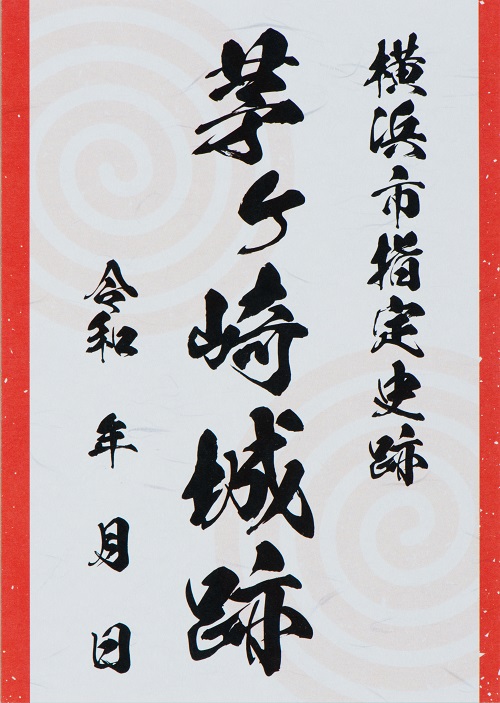 横浜市指定史跡
茅ケ崎城跡
令和 年 月 日